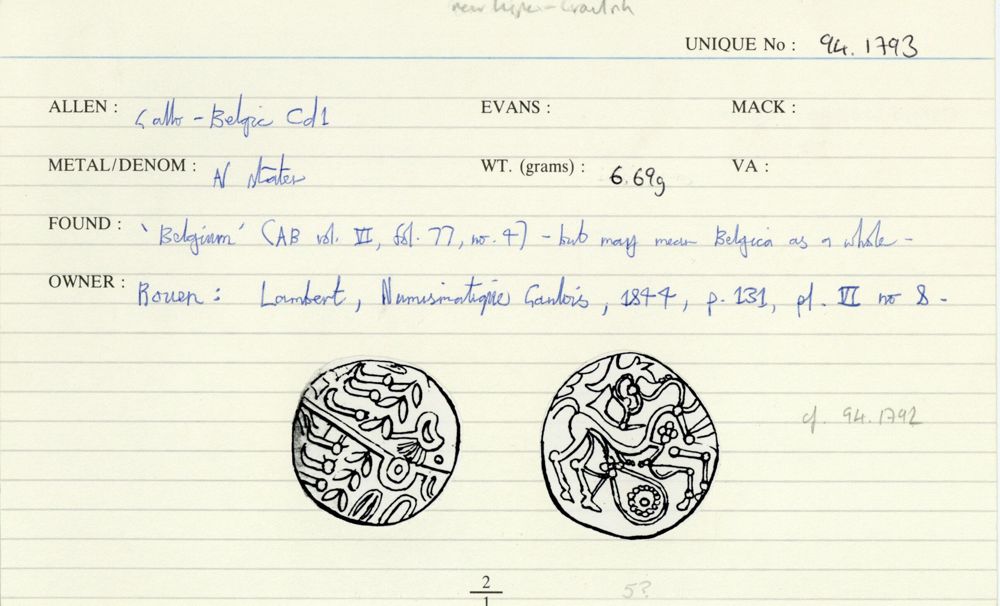 UNIQUE No : 94.1793
ALLEN : Gallo-Belgic Cd1 EVANS : MACK :
METAL/DENOM : AV stater WT. (grams) : 6.69g VA :
FOUND : 'Belgium' (AB vol. VI, fol. 77, no. 4) - but may mean Belgica as a whole -
OWNER : Rouen : Lambert, Numismatique Gauloise, 1844, p. 131, pl. VI no 8 -
cf. 94.1792
2
1
5?